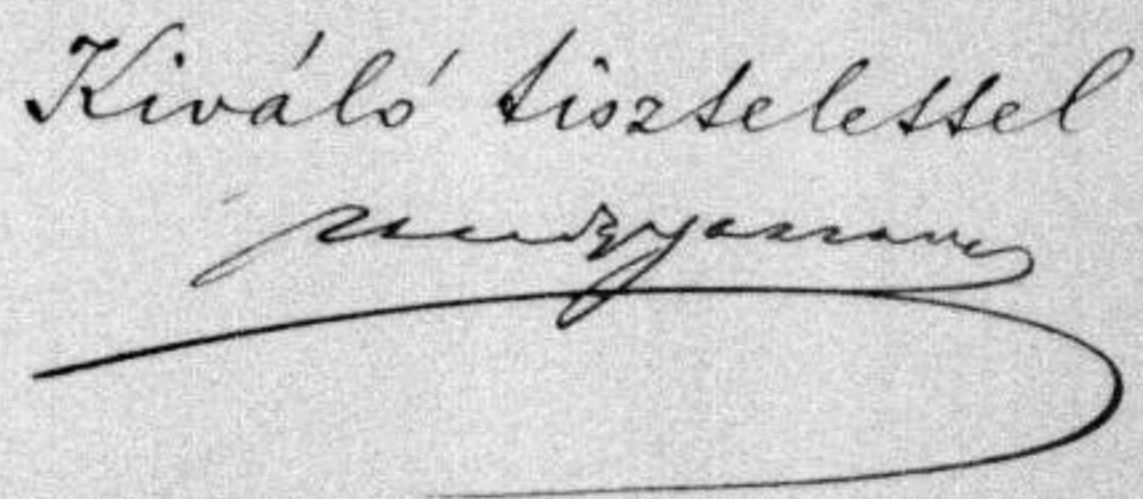 Kiváló tisztelettel